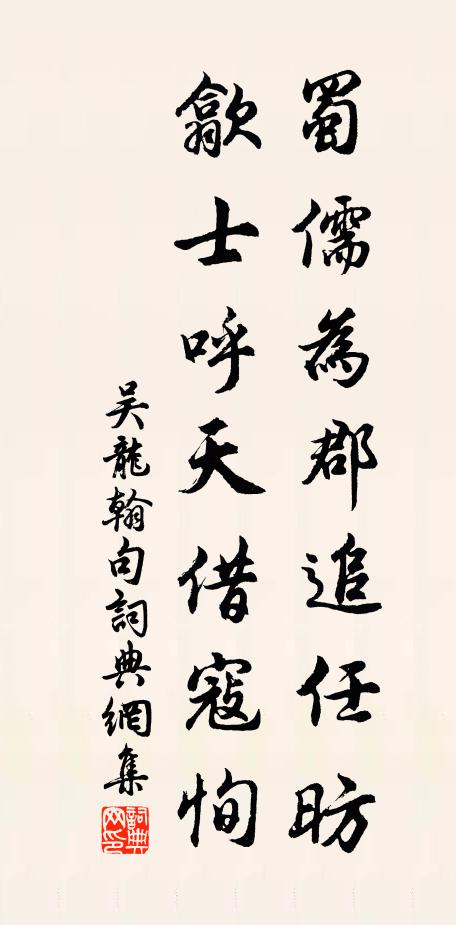 蜀儒為郡追任昉
歙士呼天借寇恂
吳龍翰句詞典網集
詞典網印